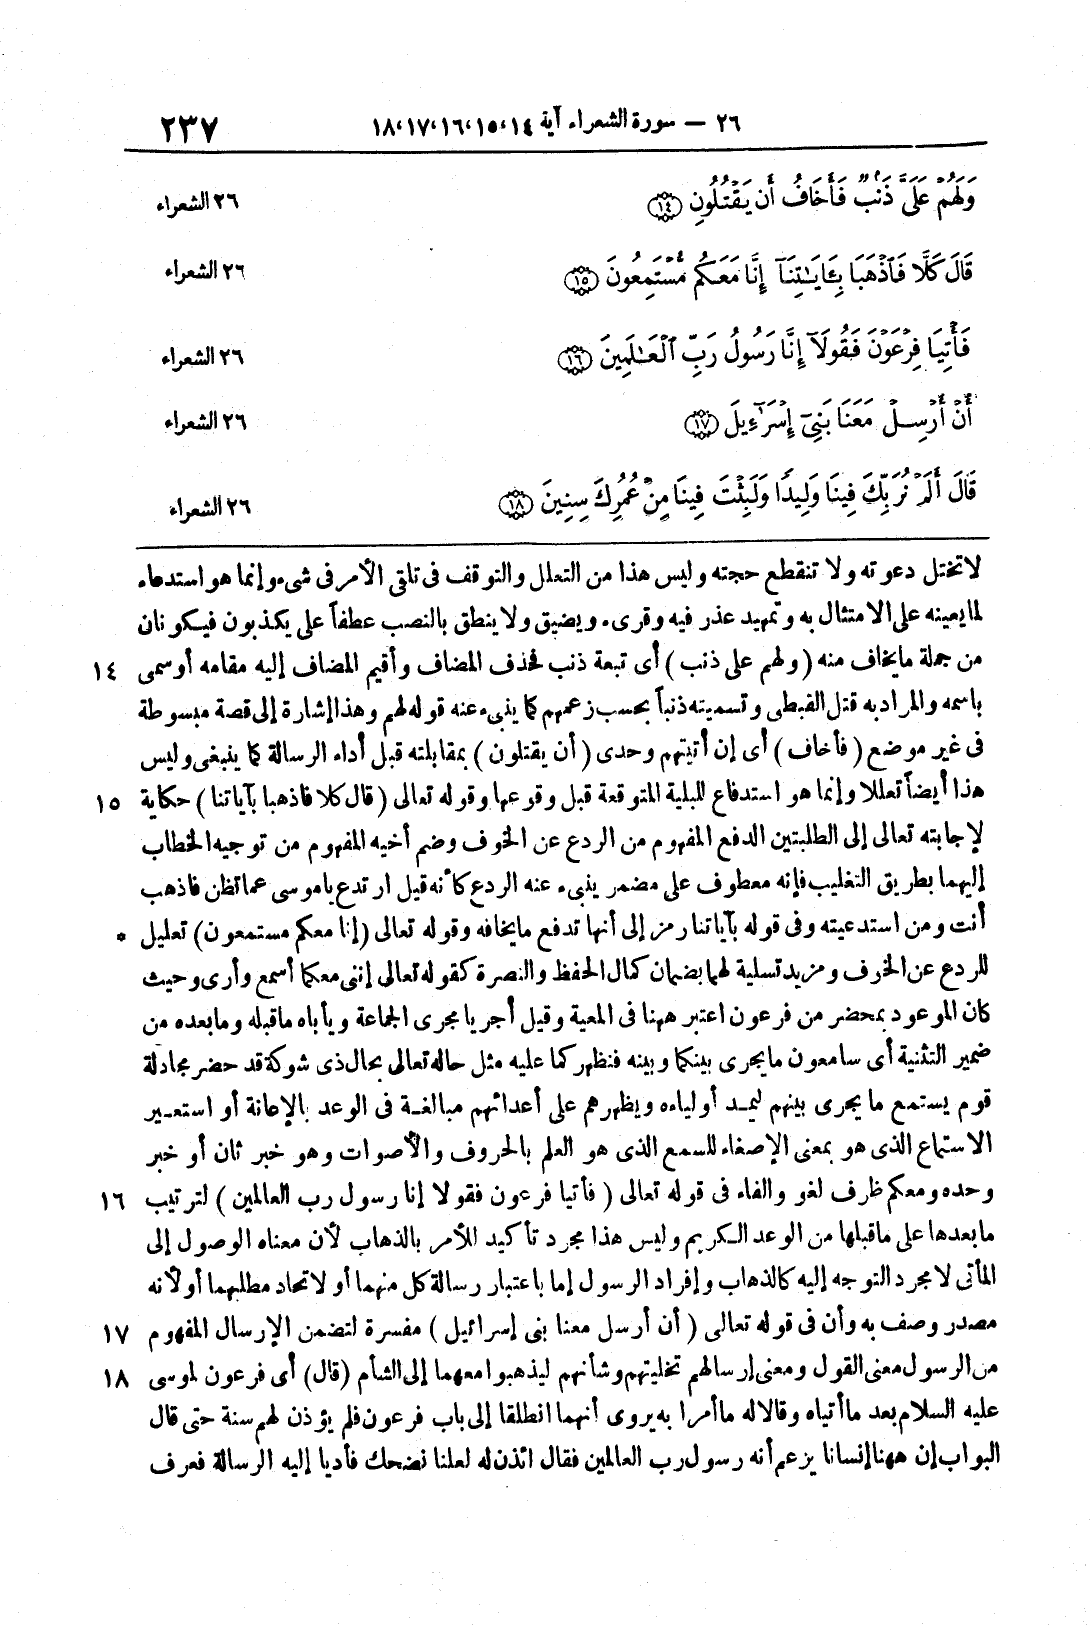 ٢٦ — سورة الشعراء آية ١٤، ١٥، ١٦، ١٧، ١٨ ٢٣٧
وَلَهُمْ عَلَىَّ ذَنۢبٌ فَأَخَافُ أَن يَقْتُلُونِ ﴿١٤﴾ ٢٦ الشعراء
قَالَ كَلَّا فَٱذْهَبَا بِـَٔايَـٰتِنَآ إِنَّا مَعَكُم مُّسْتَمِعُونَ ﴿١٥﴾ ٢٦ الشعراء
فَأْتِيَا فِرْعَوْنَ فَقُولَآ إِنَّا رَسُولُ رَبِّ ٱلْعَـٰلَمِينَ ﴿١٦﴾ ٢٦ الشعراء
أَنْ أَرْسِلْ مَعَنَا بَنِىٓ إِسْرَٰٓءِيلَ ﴿١٧﴾ ٢٦ الشعراء
قَالَ أَلَمْ نُرَبِّكَ فِينَا وَلِيدًا وَلَبِثْتَ فِينَا مِنْ عُمُرِكَ سِنِينَ ﴿١٨﴾ ٢٦ الشعراء
لا تختل دعوته ولا تنقطع حجته وليس هذا من التعلل والتوقف فى تلقى الأمر فى شىء وإنما هو استدعاء
لما يعينه على الامتثال به وتمهيد عذر فيه وقرىء ويضيق ولا ينطلق بالنصب عطفاً على يكذبون فيكونان
من جملة ما يخاف منه (ولهم على ذنب) أى تبعة ذنب فحذف المضاف وأقيم المضاف إليه مقامه أو سمى ١٤
باسمه والمراد به قتل القبطى وتسميته ذنباً بحسب زعمهم كما ينبىء عنه قوله لهم وهذا إشارة إلى قصة مبسوطة
فى غير موضع (فأخاف) أى إن أتيتهم وحدى (أن يقتلون) بمقابلته قبل أداء الرسالة كما ينبغى وليس
هذا أيضاً تعللا وإنما هو استدفاع للبلية المتوقعة قبل وقوعها وقوله تعالى (قال كلا فاذهبا بآياتنا) حكاية ١٥
لإجابته تعالى إلى الطلبتين الدفع المفهوم من الردع عن الخوف وضم أخيه المفهوم من توجيه الخطاب
إليهما بطريق التغليب فإنه معطوف على مضمر ينبىء عنه الردع كأنه قيل ارتدع ياموسى عما تظن فاذهب
أنت ومن استدعيته وفى قوله بآياتنا رمز إلى أنها تدفع ما يخافه وقوله تعالى (إنا معكم مستمعون) تعليل *
للردع عن الخوف ومزيد تسلية لهما بضمان كمال الحفظ والنصرة كقوله تعالى إننى معكما أسمع وأرى وحيث
كان الموعود بمحضر من فرعون اعتبر ههنا فى المعية وقيل أجريا مجرى الجماعة ويأباه ما قبله وما بعده من
ضمير التثنية أى سامعون ما يجرى بينكما وبينه فنظهركما عليه مثل حاله تعالى بحال ذى شوكة قد حضر مجادلة
قوم يستمع ما يجرى بينهم ليمد أولياءه ويظهرهم على أعدائهم مبالغة فى الوعد بالإعانة أو استعير
الاستماع الذى هو بمعنى الإصغاء للسمع الذى هو العلم بالحروف والأصوات وهو خبر ثان أو خبر
وحده ومعكم ظرف لغو والفاء فى قوله تعالى (فأتيا فرعون فقولا إنا رسول رب العالمين) لترتيب ١٦
ما بعدها على ما قبلها من الوعد الكريم وليس هذا مجرد تأكيد للأمر بالذهاب لأن معناه الوصول إلى
المأتى لا مجرد التوجه إليه كالذهاب وإفراد الرسول إما باعتبار رسالة كل منهما أو لاتحاد مطلبهما أو لأنه
مصدر وصف به وأن فى قوله تعالى (أن أرسل معنا بنى إسرائيل) مفسرة لتضمن الإرسال المفهوم ١٧
من الرسول معنى القول ومعنى إرسالهم تخليتهم وشأنهم ليذهبوا معهما إلى الشأم (قال) أى فرعون لموسى ١٨
عليه السلام بعد ما أتياه وقالا له ما أمرا به يروى أنهما انطلقا إلى باب فرعون فلم يؤذن لهم سنة حتى قال
البواب إن ههنا إنسانا يزعم أنه رسول رب العالمين فقال ائذن له لعلنا نضحك فأديا إليه الرسالة فعرف